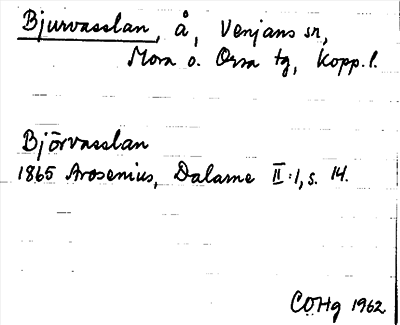 Bjurvasslan, å, Venjans sn,
Mora o. Orsa tg, Kopp. l.
Björvasslan
1865 Arosenius, Dalarne II:1, s. 14.
COHg 1962